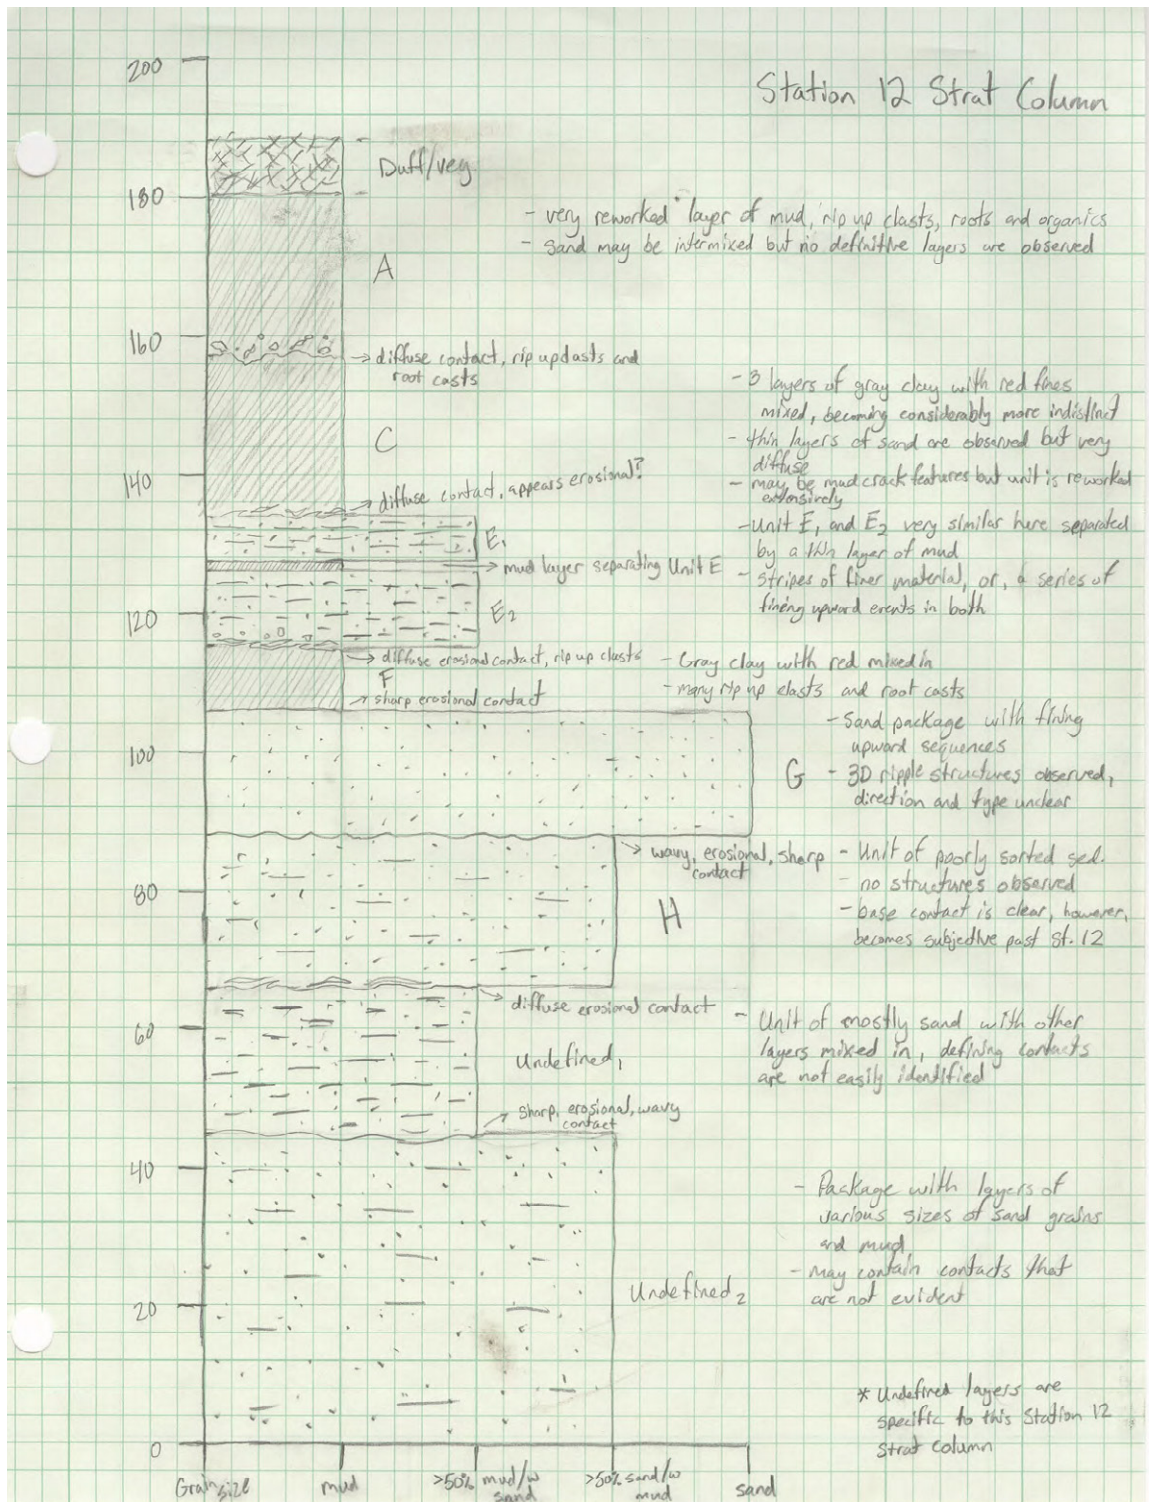 Station 12 Strat Column
200
Duff/veg
180
- very reworked layer of mud, rip up clasts, roots and organics
- sand may be intermixed but no definitive layers are observed
A
160
→ diffuse contact, rip up clasts and
root casts
- 3 layers of gray clay with red fines
mixed, becoming considerably more indistinct
- thin layers of sand are observed but very
diffuse
- may be mudcrack features but unit is reworked
extensively
C
140
→ diffuse contact, appears erosional?
- Unit E1 and E2 very similar here separated
by a thin layer of mud
- stripes of finer material, or, a series of
fining upward events in both
E1
→ mud layer separating Unit E
E2
120
→ diffuse erosional contact, rip up clasts
F
→ sharp erosional contact
- Gray clay with red mixed in
- many rip up clasts and root casts
100
G
- Sand package with fining
upward sequences
- 3D ripple structures observed,
direction and type unclear
→ wavy, erosional, sharp
contact
80
H
- Unit of poorly sorted sed.
- no structures observed
- base contact is clear, however,
becomes subjective past St. 12
→ diffuse erosional contact
60
Undefined1
- Unit of mostly sand with other
layers mixed in, defining contacts
are not easily identified
→ sharp, erosional, wavy
contact
40
- Package with layers of
various sizes of sand grains
and mud
- may contain contacts that
are not evident
Undefined2
20
* Undefined layers are
specific to this Station 12
Strat column
0
Grain size
mud
>50% mud/w
sand
>50% sand/w
mud
sand